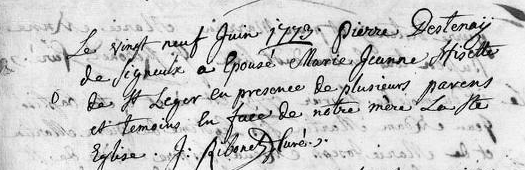 Le vingt neuf Juin 1773 Pierre Destenay
de Signeulx a Epousé Marie Jeanne Hisette
de St Leger en presence de plusieurs parens
et temoins En face de notre mère La Ste
Eglise. J. Ribonet Curé.